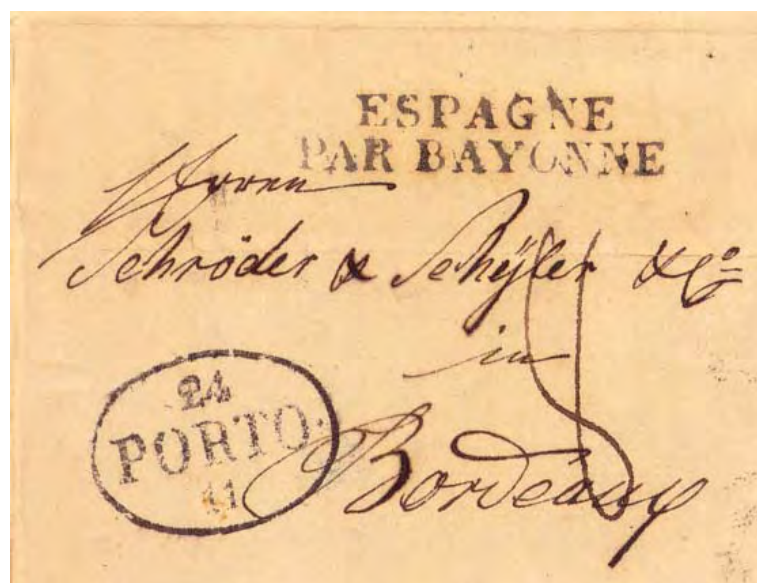 ESPAGNE
PAR BAYONNE
Herren
Schröder & Schÿler & Cº
in
Bordeaux
24
PORTO
11